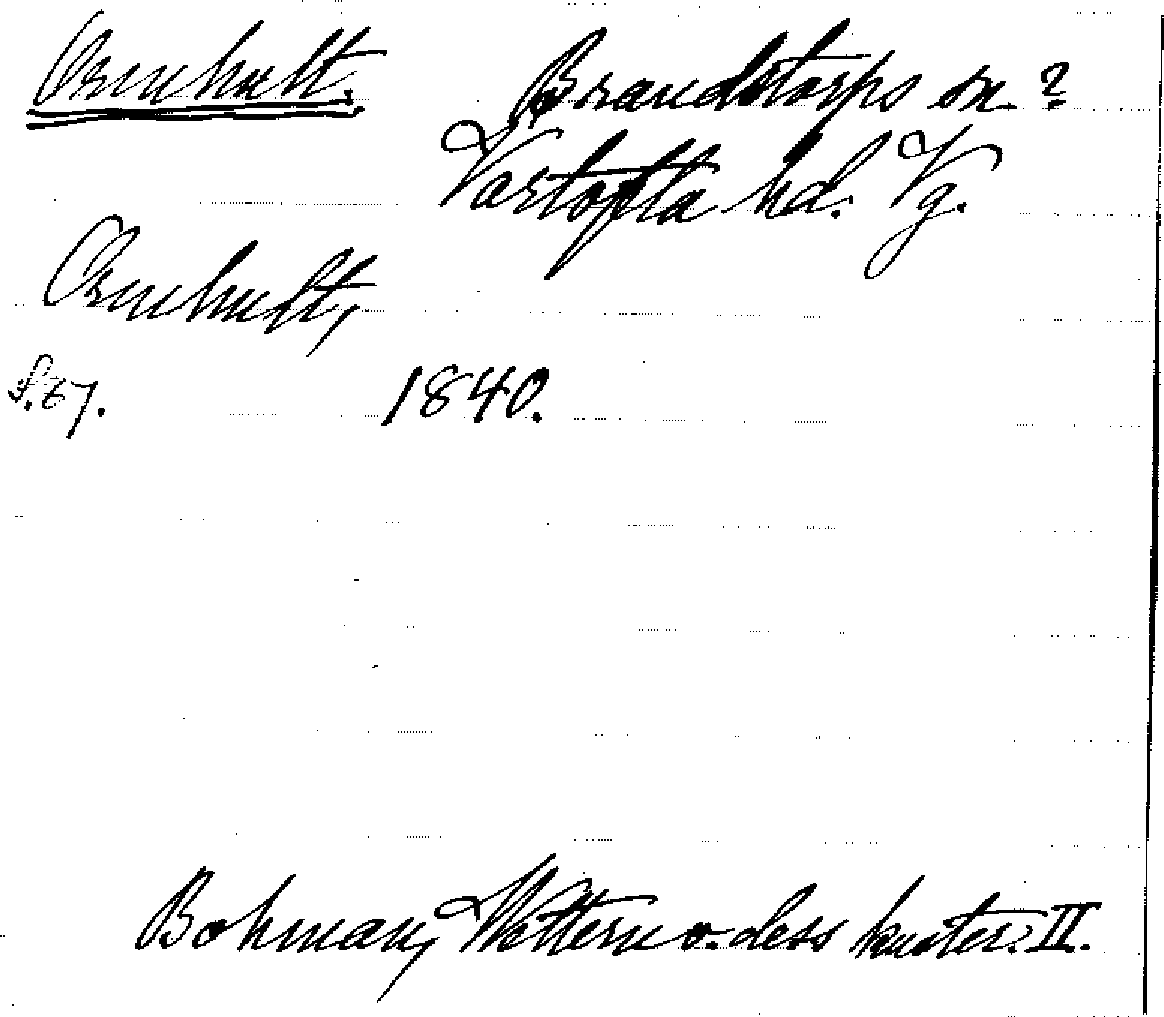 Ormhult. Brandstorps sn. ?
Vartofta hd. Vg.
Ormhult,
S. 67. 1840.
Bohman, Wettern o. dess kuster. II.